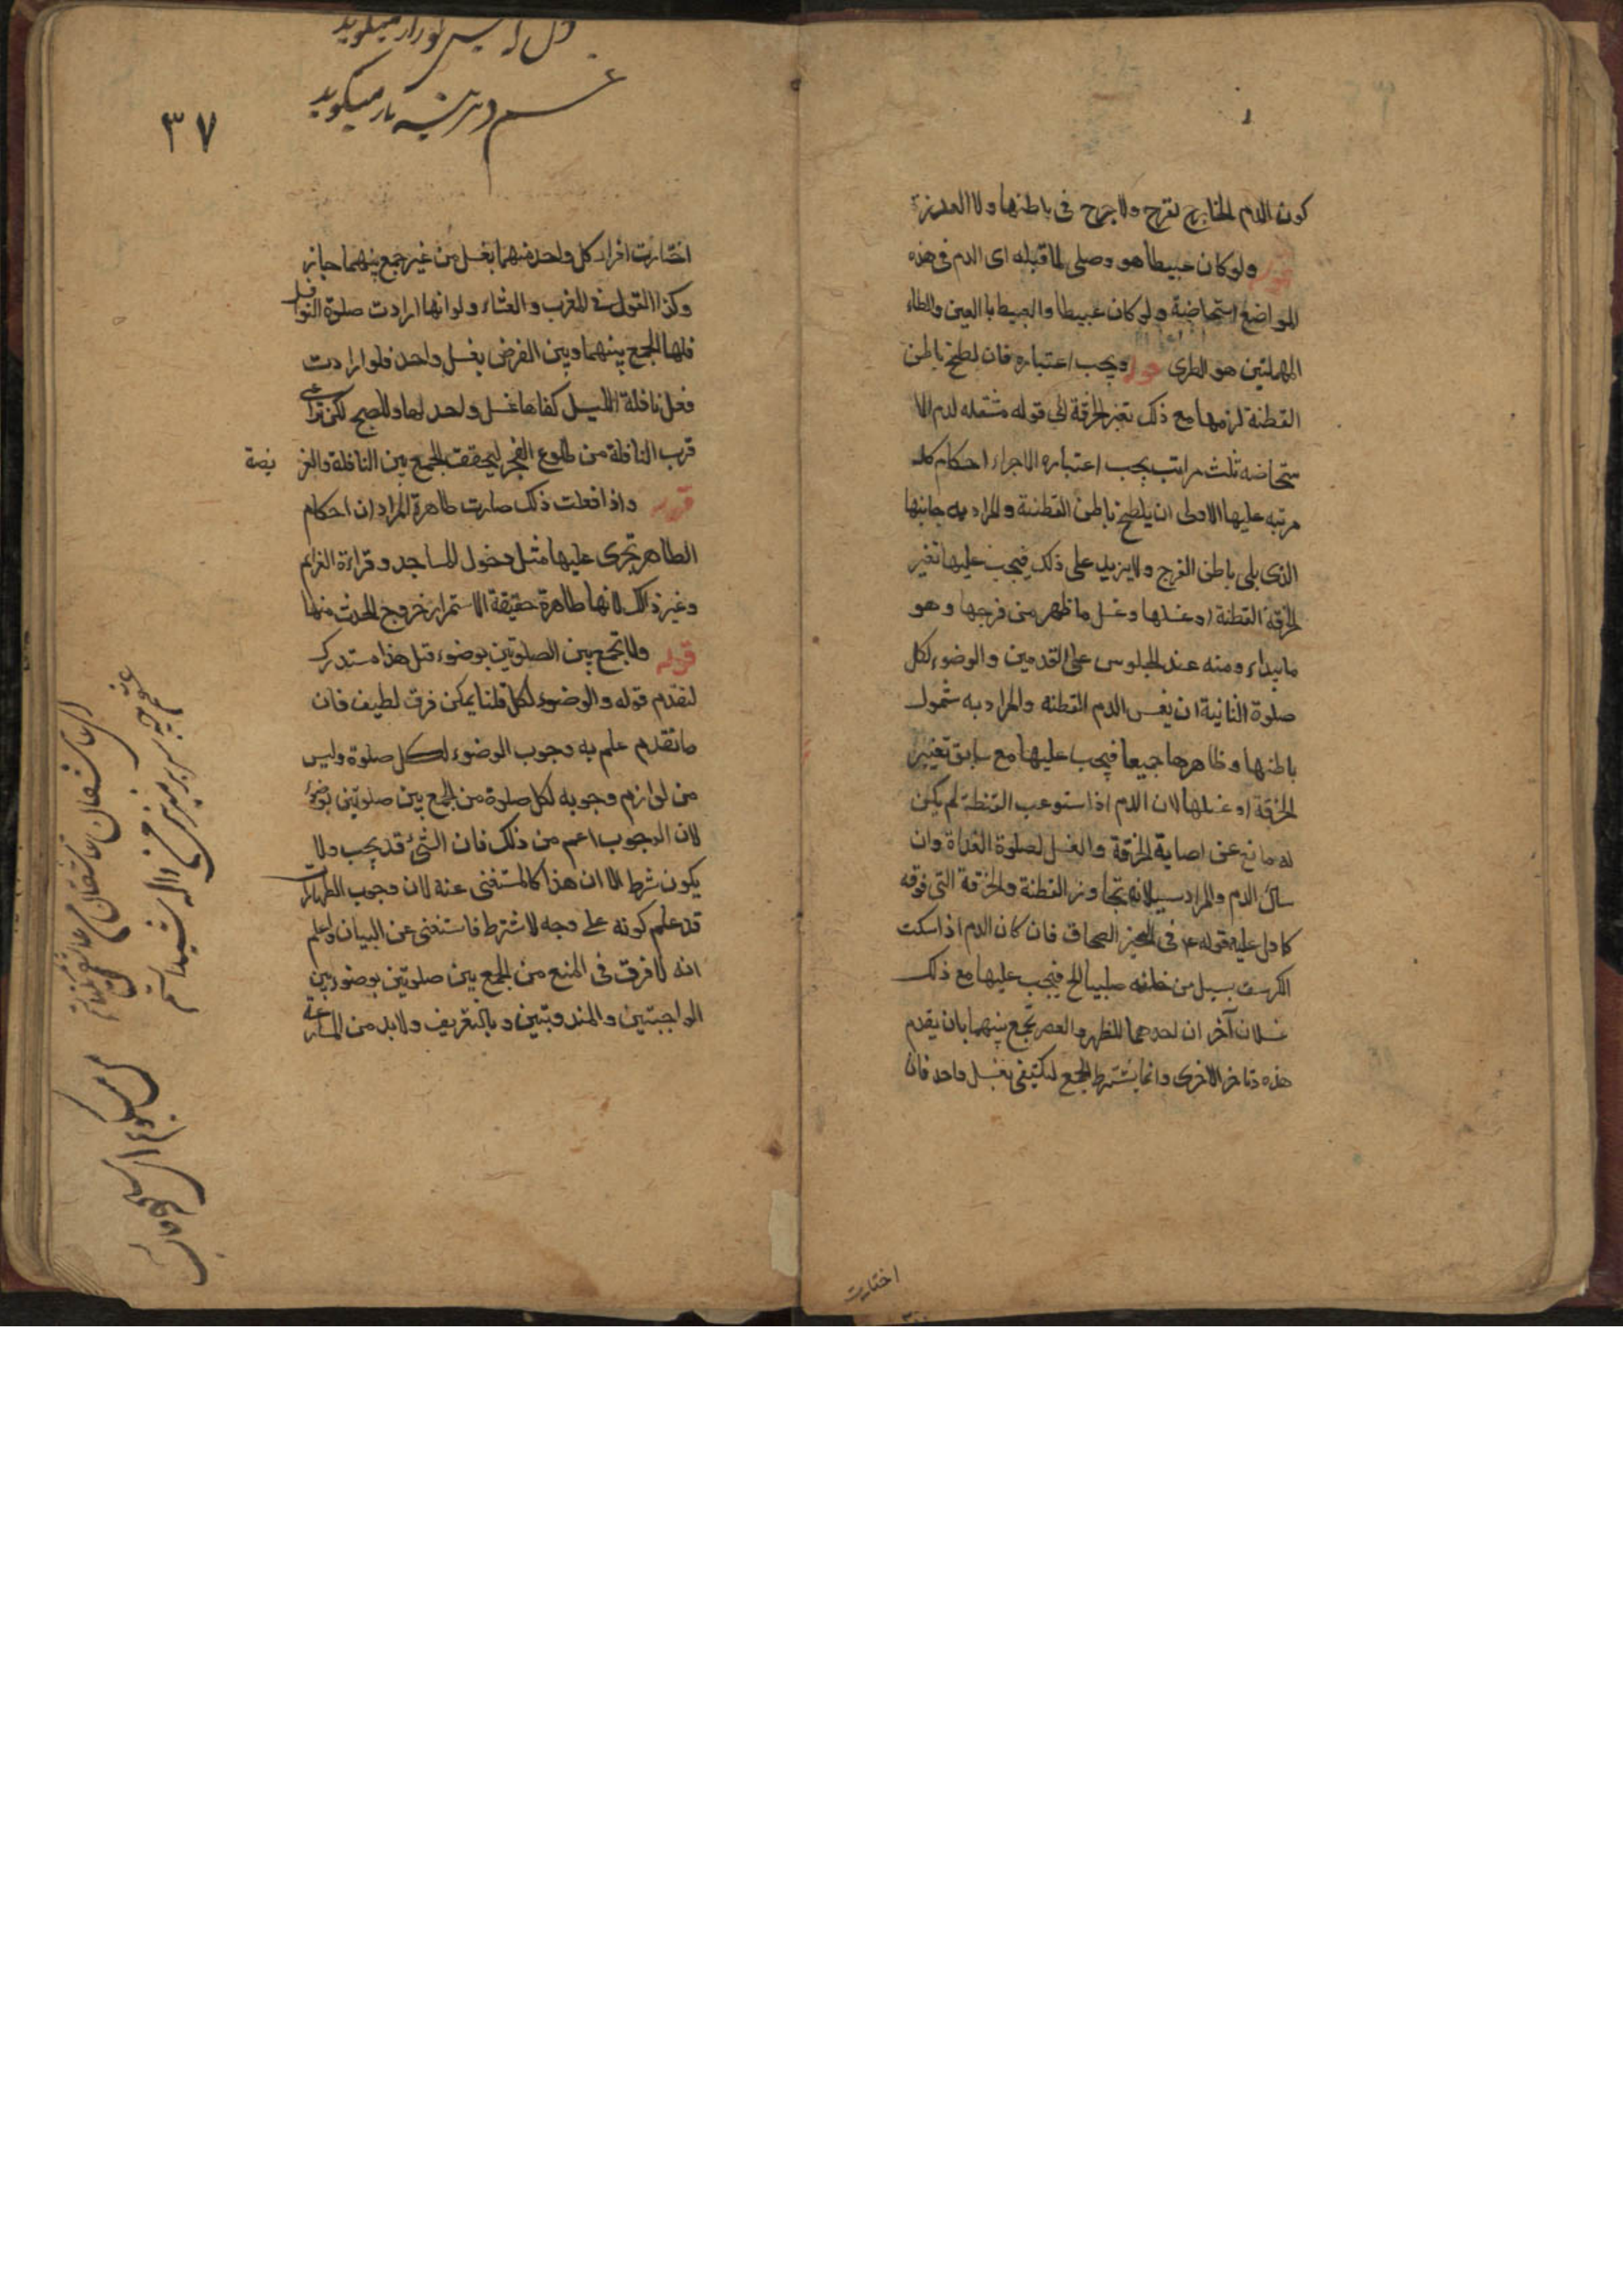 كون الدم الخارج بقرح ولا جرح فى باطنها ولا العذرة
قوله ولو كان عبيطا هو وصلى لما قبله اى الدم فى هذه
المواضع استحاضة ولو كان عبيطا والعبيط با العين والطاء
المهملتين هو الطرى قوله ويجب اعتباره فان لطخ باطن
القطنة لزمها مع ذلك تغير الخرقة الى قوله مشتمله لدم الا
ستحاضه ثلث مراتب يجب اعتباره الاجراء احكام كل
مرتبه عليها الاولى ان يلطخ باطن القطنة والمراد به جانبها
الذى يلى باطن الفرج ولا يزيد على ذلك فيجب عليها تغير
الخرقة القطنة او غسلها وغسل ما ظهر من فرجها وهو
ما يبداء ومنه عند الجلوس على القدمين والوضوء لكل
صلوة الثانية ان يغمس الدم القطنه والمراد به شمول
باطنها وظاهرها جميعا فيجب عليها مع سابق تغيير
الخرقة او غسلها لان الدم اذا استوعب القنطة لم يكن
له مانع عن اصابة الخرقة والغسل لصلوة الغداة وان
سال الدم والمراد سيلانه تجاوز القطنة والخرقة التى فوقه
كما دل عليه قوله ع فى الصحاق فان كان الدم اذا سكت
الكرسف يسيل من خلفه صلبيا الخ فيجب عليها مع ذلك
غسلان آخر ان احدهما للظهر والعصر تجمع بينهما بان يقدم
هذه وتاخر الاخرى وانما يشترط الجمع ليكتفى بغسل واحد فان
اختارت
٣٧
غم ديرينه باز ميگويد
اختارت افراد كل واحد منهما بغسل من غير جمع بينهما جاز
وكذا القول فى المغرب والعشاء ولو انها ارادت صلوة النوافل
فلها الجمع بينهما وبين الفرض بغسل واحد فلو ارادت
فعل نافلة الليل كفاها غسل واحد لها وللصبح لكن تراعى
قرب النافلة من طلوع الفجر ليحقق الجمع بين النافلة والفر يضة
قوله واذا فعلت ذلك صارت طاهرة المراد ان احكام
الطاهر تجرى عليها مثل دخول المساجد وقراءة العزائم
وغير ذالك لانها طاهرة حقيقة الاستمرار خروج الحدث منها
قوله ولا تجمع بين الصلوتين بوضوء قبل هذا مستدرك
لتقدم قوله والوضوء لكل قلنا يمكن فرق لطيف فان
ما تقدم علم به وجوب الوضوء لكل صلوة وليس
من لوازم وجوبه لكل صلوة من الجمع بين صلوتين بوضوء
لان الوجوب اعم من ذلك فان الشئ قد يجب ولا
يكون شرط الا ان هذا كالمستغنى عنه لان وجوب الطهارات
قد علم كونه على وجه الاشتراط فاستغنى عن البيان واعلم
انه لا فرق فى المنع من الجمع بين صلوتين بوضوء بين
الواجبتين والمندوبتين وبالتفريف ولا بد من المسارعة